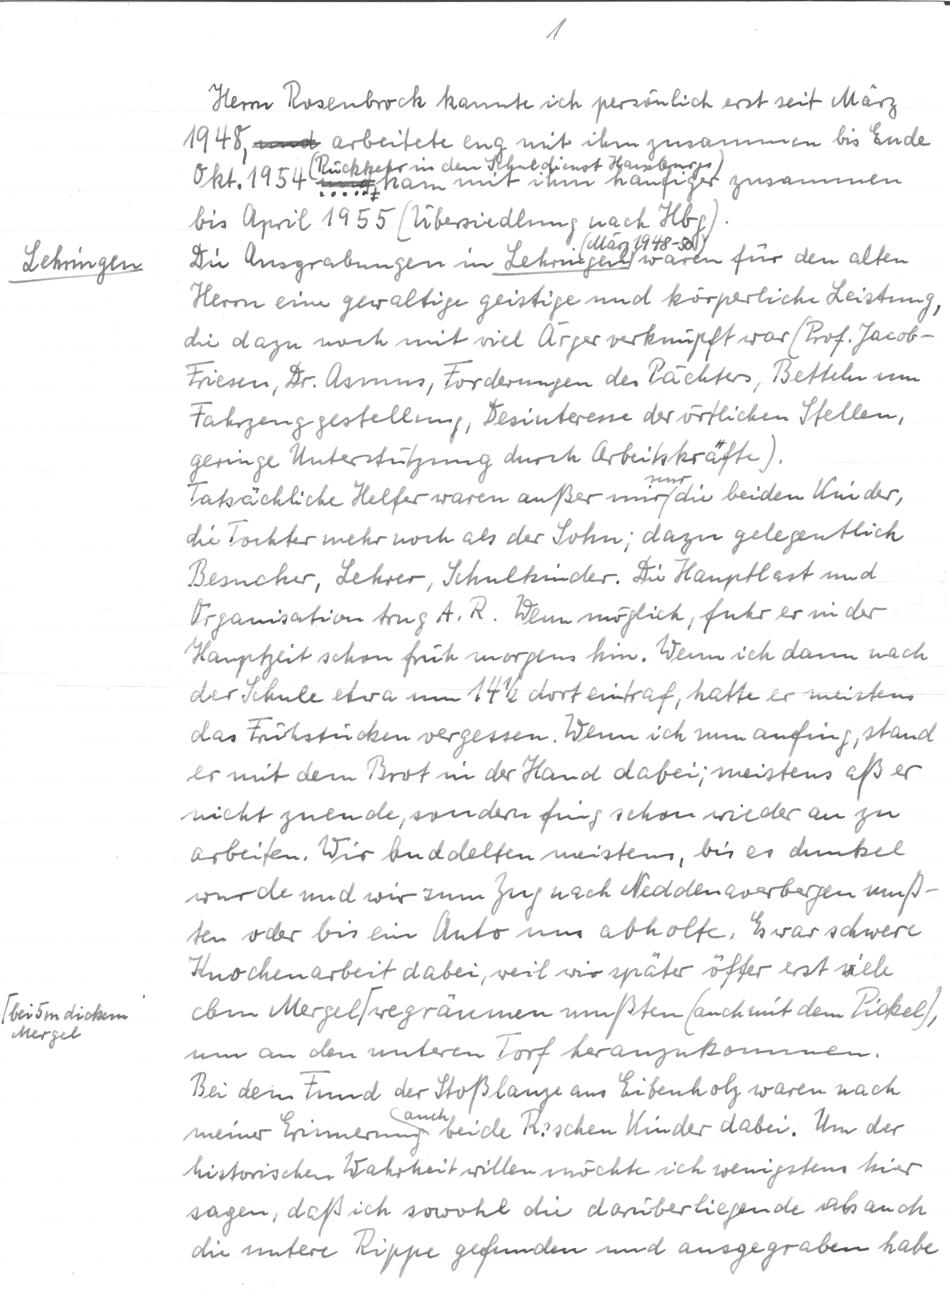 1
Herrn Rosenbrock kannte ich persönlich erst seit März
1948, und arbeitete eng mit ihm zusammen bis Ende
(Rückkehr in den Schuldienst Hamburgs)
Okt. 1954 und kam mit ihm häufiger zusammen
bis April 1955 (Übersiedlung nach Hbg).
(März 1948-50)
Lehringen Die Ausgrabungen in Lehringen waren für den alten
Herrn eine gewaltige geistige und körperliche Leistung,
die dazu noch mit viel Ärger verknüpft war (Prof. Jacob-
Friesen, Dr. Asmus, Forderungen des Pächters, Betteln um
Fahrzeuggestellung, Desinteresse der örtlichen Stellen,
geringe Unterstützung durch Arbeitskräfte).
nur
Tatsächliche Helfer waren außer mir die beiden Kinder,
die Tochter mehr noch als der Sohn; dazu gelegentlich
Besucher, Lehrer, Schulkinder. Die Hauptlast und
Organisation trug A. R. Wenn möglich, fuhr er in der
Hauptzeit schon früh morgens hin. Wenn ich dann nach
der Schule etwa um 14½ dort eintraf, hatte er meistens
das Frühstücken vergessen. Wenn ich nun anfing, stand
er mit dem Brot in der Hand dabei; meistens aß er
nicht zuende, sondern fing schon wieder an zu
arbeiten. Wir buddelten meistens, bis es dunkel
wurde und wir zum Zug nach Neddenaverbergen muß-
ten oder bis ein Auto uns abholte. Es war schwere
Knochenarbeit dabei, weil wir später öfter erst viele
[bei 5m dickem
Mergel
cbm Mergel [wegräumen mußten (auch mit dem Pickel),
um an den unteren Torf heranzukommen.
Bei dem Fund der Stoßlanze aus Eibenholz waren nach
auch
meiner Erinnerung beide R:schen Kinder dabei. Um der
historischen Wahrheit willen möchte ich wenigstens hier
sagen, daß ich sowohl die darüberliegende als auch
die untere Rippe gefunden und ausgegraben habe